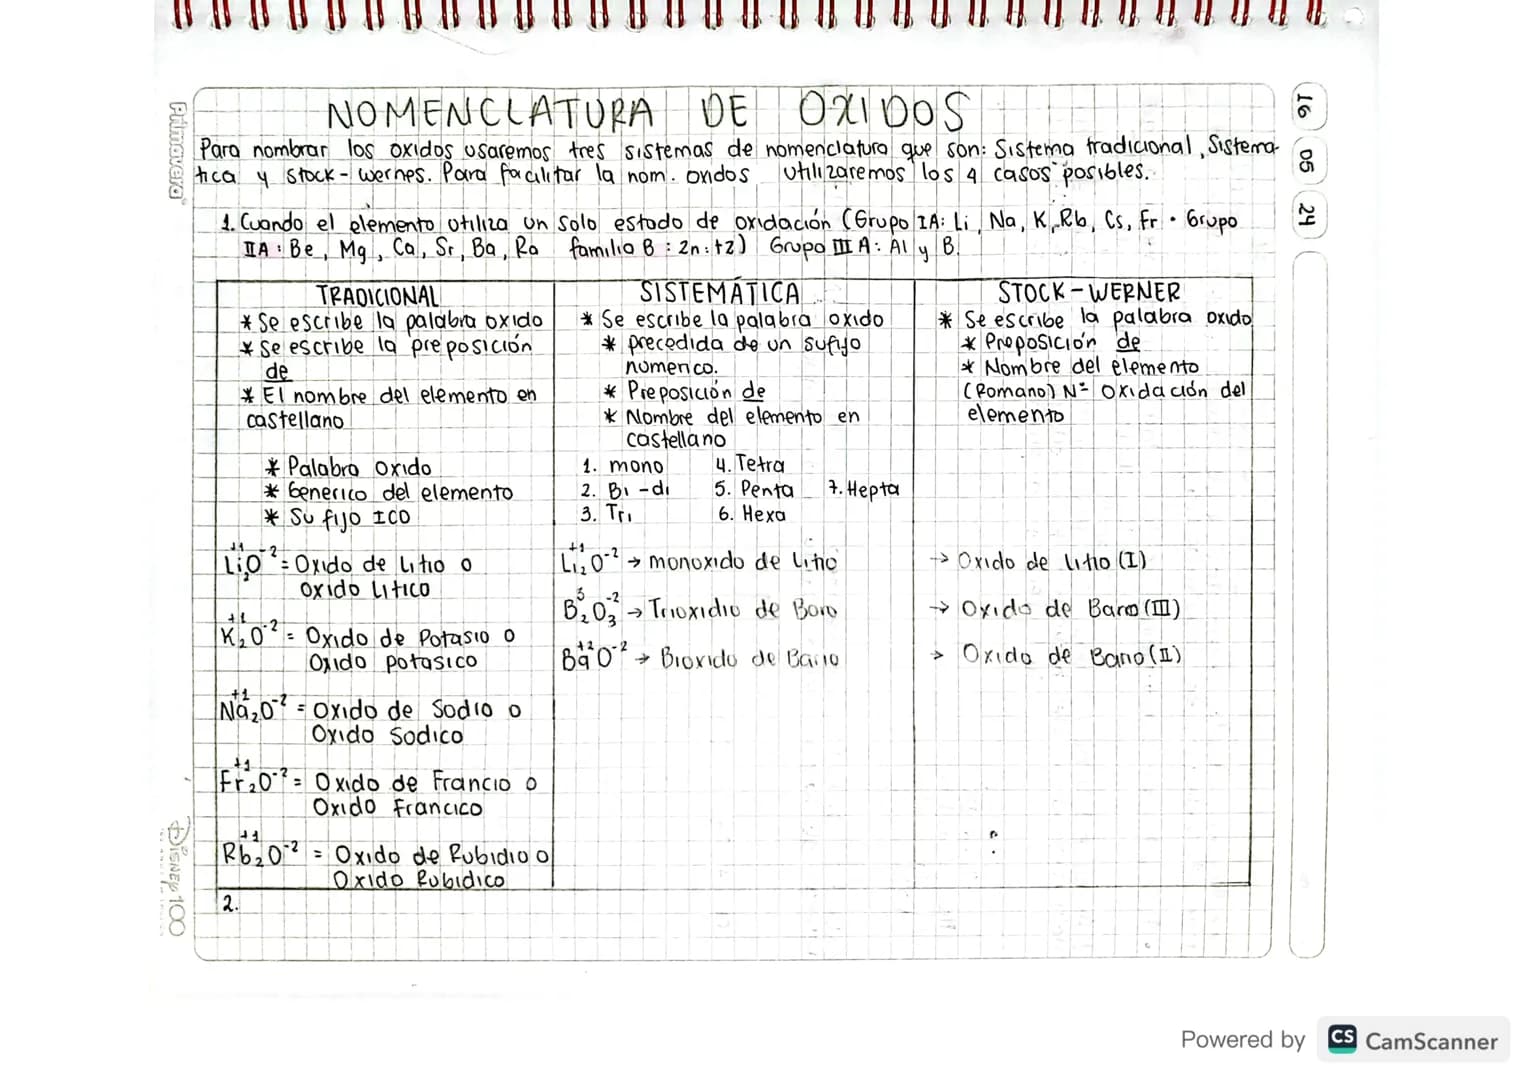 NOMENCLATURA DE OXIDOS
Para nombrar los oxidos usaremos tres sistemas de nomenclatura que son: Sistema tradicional, Sistema-
tica y Stock-wernes. Para facilitar la nom. oxidos utilizaremos los 4 casos posibles.
1. Cuando el elemento utiliza un solo estado de oxidación (Grupo IA: Li, Na, K, Rb, Cs, Fr • Grupo
IIA: Be, Mg, Ca, Sr, Ba, Ra familia B: Zn: +2) Grupo III A: Al y B.
TRADICIONAL
* Se escribe la palabra oxido
* Se escribe la preposición
de
* El nombre del elemento en
castellano
* Palabra oxido
* Generico del elemento
* Sufijo ICO
Li₂⁺¹O⁻² = Oxido de Litio o
Oxido Litico
K₂⁺¹O⁻² = Oxido de Potasio o
Oxido potasico
Na₂⁺¹O⁻² = Oxido de Sodio o
Oxido Sodico
Fr₂⁺¹O⁻² = Oxido de Francio o
Oxido Francico
Rb₂⁺¹O⁻² = Oxido de Rubidio o
Oxido Rubidico
2.
SISTEMÁTICA
* Se escribe la palabra oxido
* precedida de un sufijo
numerico.
* Preposición de
* Nombre del elemento en
castellano
1. mono 4. Tetra
2. Bi-di 5. Penta 7. Hepta
3. Tri 6. Hexa
Li₂⁺¹O⁻² → monoxido de Litio
B₂³O₃⁻² → Trioxidio de Boro
Ba⁺²O⁻² → Bioxido de Bario
STOCK-WERNER
* Se escribe la palabra oxido
* Preposición de
* Nombre del elemento
(Romano) Nº Oxidación del
elemento
→ Oxido de litio (I)
→ Oxido de Baro (III)
→ Oxido de Bario (II)
16
05
24
Primavera
Disney 100
Powered by CS CamScanner